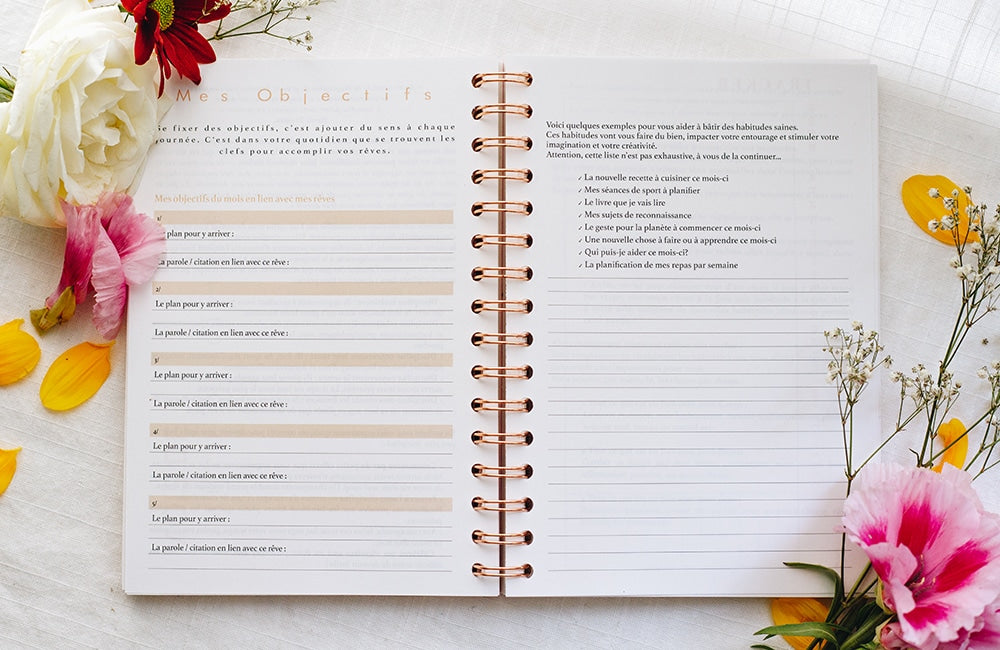 Mes Objectifs
Se fixer des objectifs, c'est ajouter du sens à chaque
journée. C'est dans votre quotidien que se trouvent les
clefs pour accomplir vos rêves.
Mes objectifs du mois en lien avec mes rêves
1/
Le plan pour y arriver :
La parole / citation en lien avec ce rêve :
2/
Le plan pour y arriver :
La parole / citation en lien avec ce rêve :
3/
Le plan pour y arriver :
La parole / citation en lien avec ce rêve :
4/
Le plan pour y arriver :
La parole / citation en lien avec ce rêve :
5/
Le plan pour y arriver :
La parole / citation en lien avec ce rêve :
Voici quelques exemples pour vous aider à bâtir des habitudes saines.
Ces habitudes vont vous faire du bien, impacter votre entourage et stimuler votre
imagination et votre créativité.
Attention, cette liste n'est pas exhaustive, à vous de la continuer...
✓ La nouvelle recette à cuisiner ce mois-ci
✓ Mes séances de sport à planifier
✓ Le livre que je vais lire
✓ Mes sujets de reconnaissance
✓ Le geste pour la planète à commencer ce mois-ci
✓ Une nouvelle chose à faire ou à apprendre ce mois-ci
✓ Qui puis-je aider ce mois-ci?
✓ La planification de mes repas par semaine